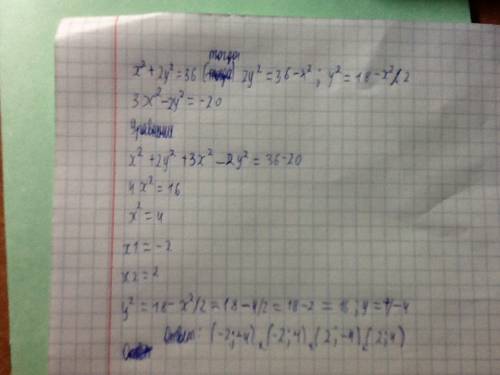 тогда
x² + 2y² = 36 ( 2y² = 36 - x² ; y² = 18 - x²/2
3x² - 2y² = -20
x² + 2y² + 3x² - 2y² = 36 - 20
4x² = 16
x² = 4
x1 = -2
x2 = 2
y² = 18 - x²/2 = 18 - 4/2 = 18 - 2 = 16 ; y = +/-4
Ответ: (-2; -4), (-2; 4), (2; -4), (2; 4)